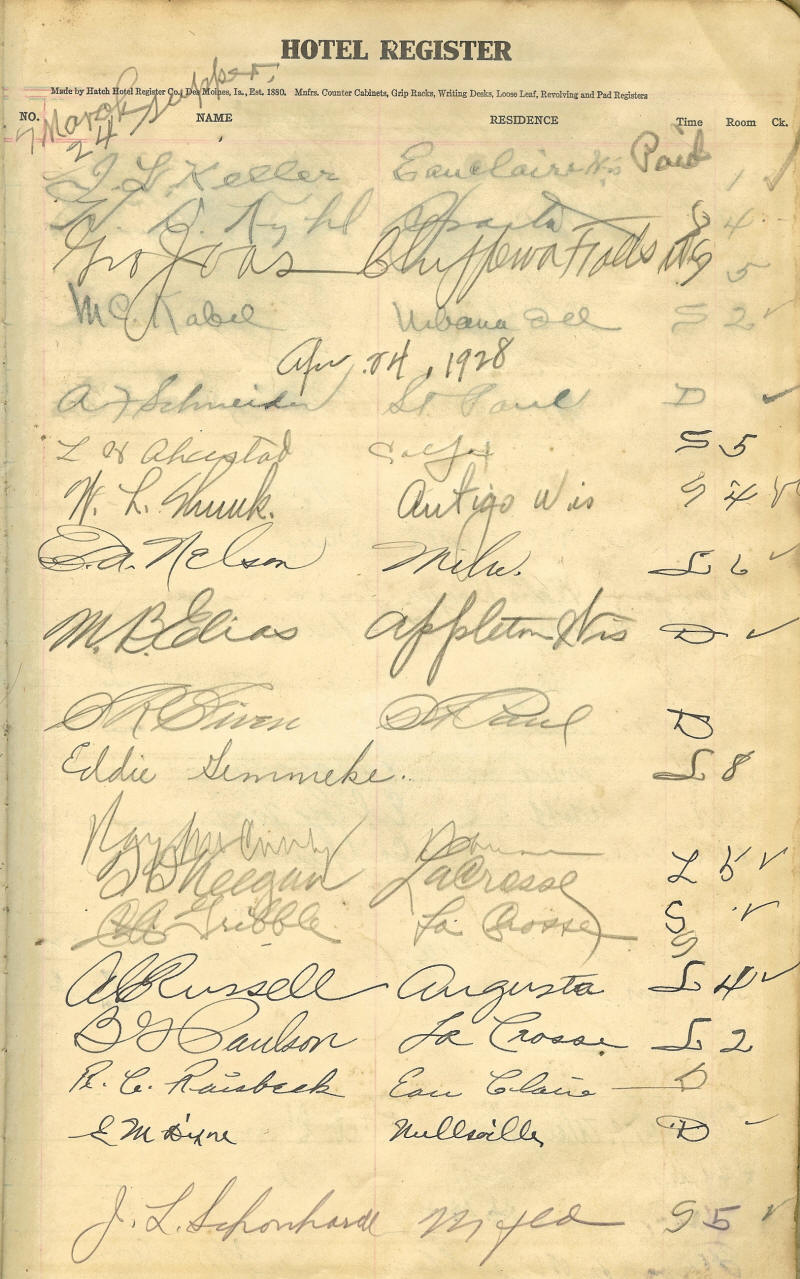 HOTEL REGISTER
Made by Hatch Hotel Register Co., Des Moines, Ia., Est. 1880. Mnfrs. Counter Cabinets, Grip Racks, Writing Desks, Loose Leaf, Revolving and Pad Registers
NO. NAME RESIDENCE Time Room Ck.
7 March 24 Supper.
J. L. Keller Eauclaire Wis Paid 1 ✓
Sparta S 4
Geo Joas Chippewa Falls Wis 5
Mc Kabel Urbana S 2 ✓
Apr. 24, 1928
A F Schneider St Paul D ✓
L S 5
W. L. Antigo Wis S 4 ✓
E.A. Nelson Milw. L 6 ✓
M. B. Elias Appleton Wis D ✓
St Paul D
Eddie Gemmeke. L 8
Ray
Keegan LaCrosse L 5 ✓
Gribble La Crosse S ✓
S
Russell Augusta L 4 ✓
B G Paulson La Crosse L 2
R. C. Raisbeck Eau Claire D
E M D ✓
J. L. Schonhardt S 5 ✓